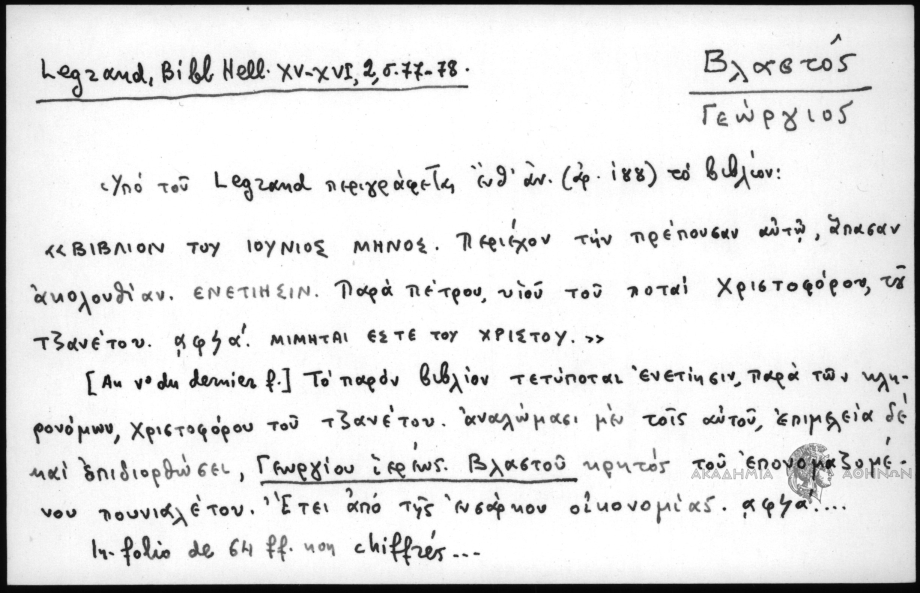 Legrand, Bibl Hell. XV-XVI, 2, σ. 77-78.
Βλαστός
Γεώργιος
Ὑπό τοῦ Legrand περιγράφεται ἔνθ' ἀν. (ἀρ. 188) τό βιβλίον:
«ΒΙΒΛΙΟΝ ΤΟΥ ΙΟΥΝΙΟΣ ΜΗΝΟΣ. Περιέχον τήν πρέπουσαν αὐτῷ, ἅπασαν
ἀκολουθίαν. ΕΝΕΤΙΗΣΙΝ. Παρά Πέτρου, υἱοῦ τοῦ ποταί Χριστοφόρου, τοῦ
Τζανέτου. ͵αφϟα΄. ΜΙΜΗΤΑΙ ΕΣΤΕ ΤΟΥ ΧΡΙΣΤΟΥ.»
[Au vº du dernier f.] Τό παρόν βιβλίον τετύποται Ἐνετίησιν, παρά τῶν κλη-
ρονόμων, Χριστοφόρου τοῦ Τζανέτου. ἀναλώμασι μέν τοῖς αὐτοῦ, ἐπιμελεία δέ
καί ἐπιδιορθώσει, Γεωργίου ἱερέως. Βλαστοῦ κρητός τοῦ ἐπονομαζομέ-
νου πουνιαλέτου. Ἔτει ἀπό τῆς ἐνσάρκου οἰκονομίας. ͵αφϟα΄....
In-folio de 64 ff. non chiffrés...
ΑΚΑΔΗΜΙΑ ΑΘΗΝΩΝ